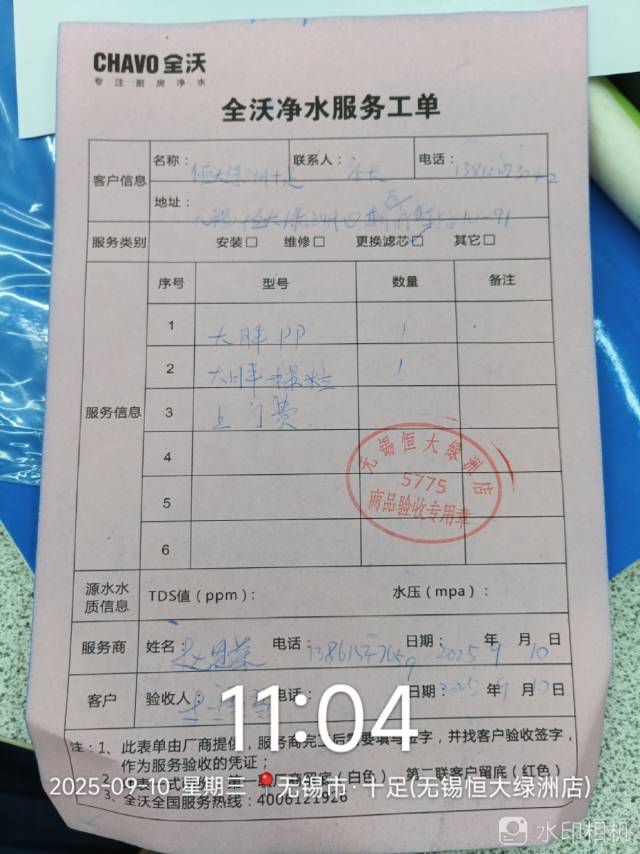 CHAVO 全沃
专注厨房净水
全沃净水服务工单
客户信息 名称: 恒大绿洲十足 联系人: 店长 电话:
地址:
服务类别 安装□ 维修□ 更换滤芯☑ 其它□
序号 型号 数量 备注
服务信息
1 大胖PP 1
2 大胖颗粒 1
3 上门费
4
5
6
无锡恒大绿洲店
5775
商品验收专用章
源水水质信息 TDS值(ppm): 水压(mpa):
服务商 姓名: 电话: 日期: 2025年9月10日
客户 验收人: 电话: 日期: 2025年9月10日
注:1、此表单由厂商提供,服务商完工后
并找客户验收签字,
作为服务验收的凭证;
第二联客户留底(红色)
3、全沃全国服务热线:4006121926
11:04
2025-09-10 星期三 无锡市·十足(无锡恒大绿洲店)
水印相机